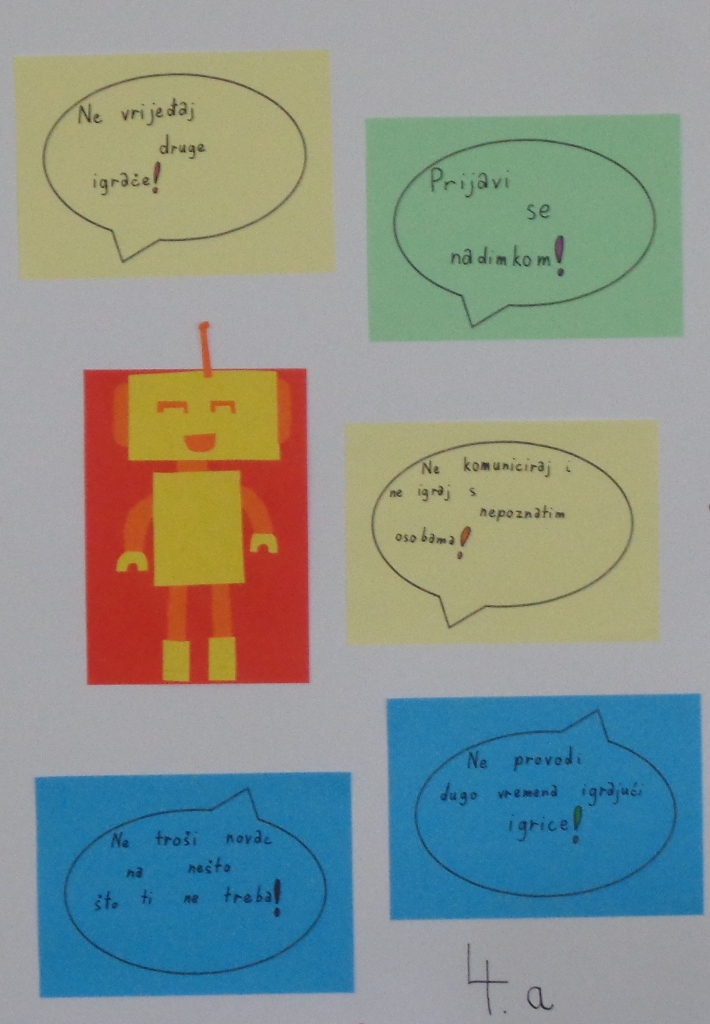 Ne vrijeđaj
druge
igrače!
Prijavi
se
nadimkom!
Ne komuniciraj i
ne igraj s
nepoznatim
osobama!
Ne provodi
dugo vremena igrajući
igrice!
Ne troši novac
na nešto
što ti ne treba!
4. a